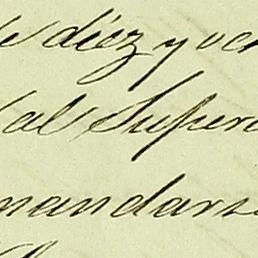 de diez y ve
al Super
mandars